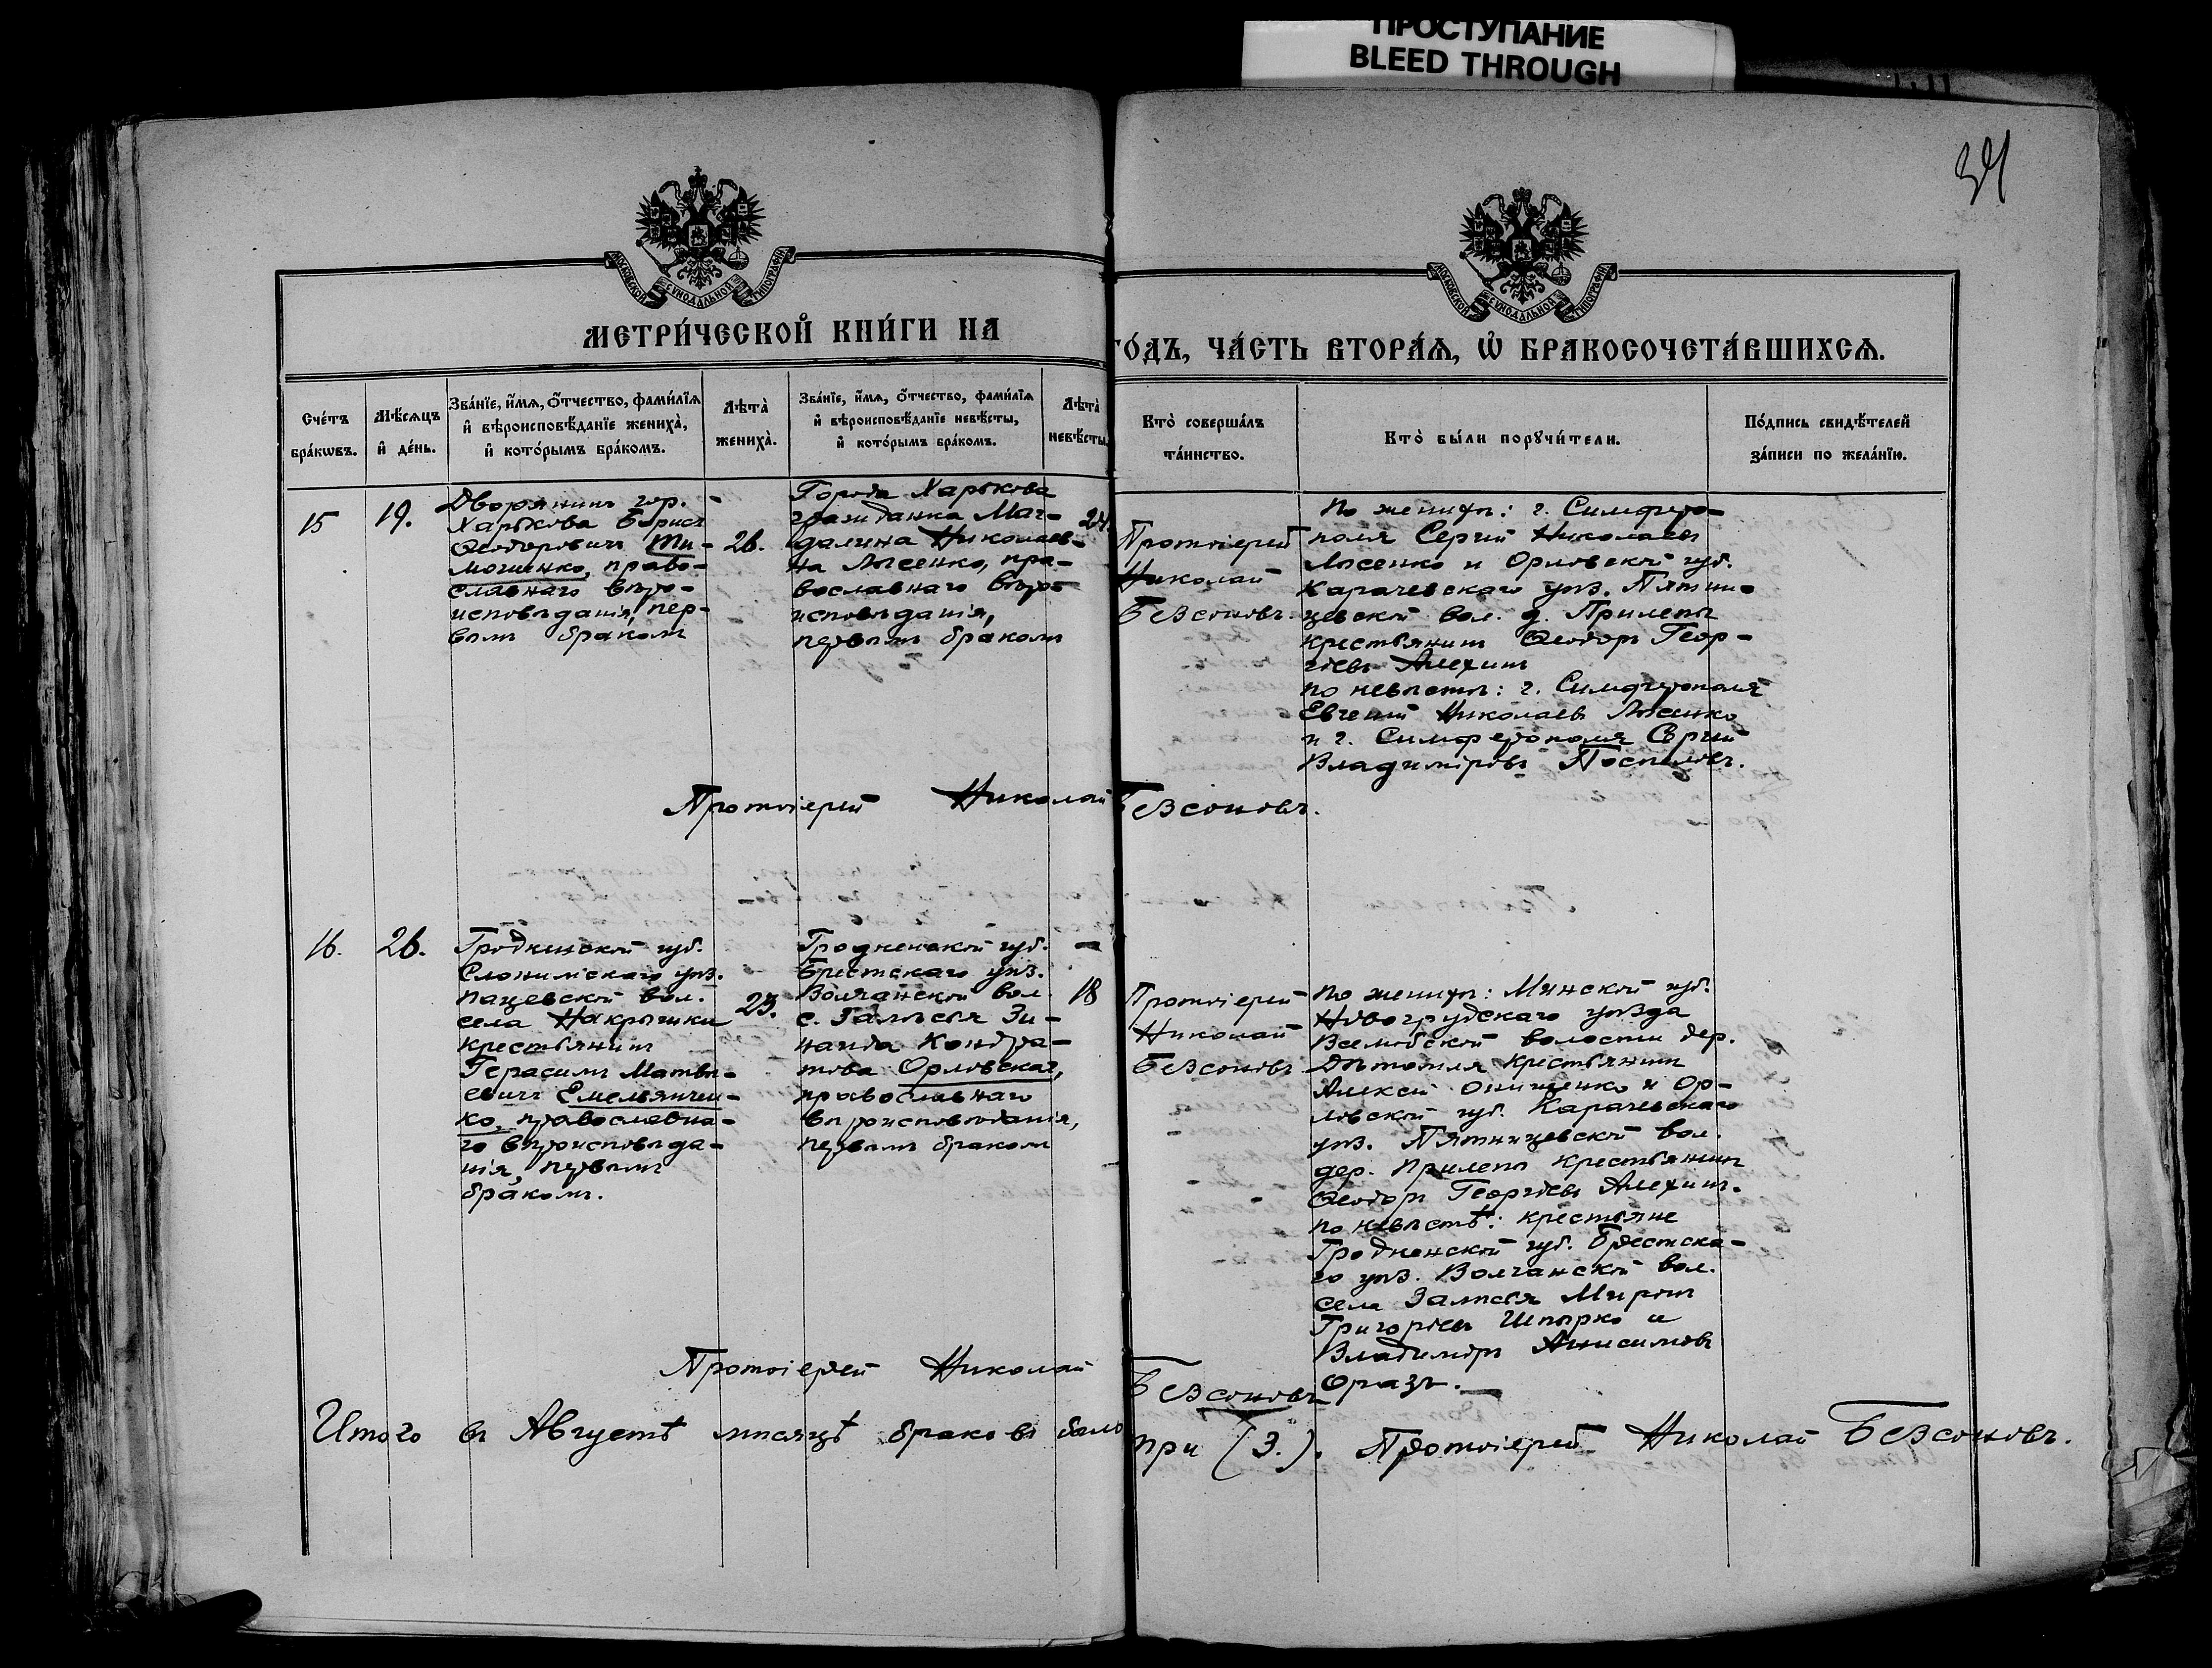 ПРОСТУПАНИЕ
BLEED THROUGH
МОСКОВСКОЙ СѴНОДАЛЬНОЙ ТИПОГРАФІИ
МОСКОВСКОЙ СѴНОДАЛЬНОЙ ТИПОГРАФІИ
МЕТРИ́ЧЕСКОЙ КНИ́ГИ НА
ГО́ДЪ, ЧА́СТЬ ВТОРА́Ѧ, Ѡ҆ БРАКОСОЧЕТА́ВШИХСѦ.
Сче́тъ
бра́кѡвъ.
Мѣ́сяцъ
и҆ де́нь.
Зва́нїе, и҆́мѧ, ѻ҆́тчество, фами́лїѧ
и҆ вѣроисповѣ́данїе жениха̀,
и҆ кото́рымъ бра́комъ.
Лѣта̀
жениха̀.
Зва́нїе, и҆́мѧ, ѻ҆́тчество, фами́лїѧ
и҆ вѣроисповѣ́данїе невѣ́сты,
и҆ кото́рымъ бра́комъ.
Лѣта̀
невѣ́сты.
Кто̀ соверша́лъ
та́инство.
Кто̀ бы́ли порꙋчи́тели.
По́дпись свидѣ́телей
за́писи по жела́нїю.
15
19.
Дворянинъ гор.
Харькова Борисъ
Ѳеодоровичъ Ти-
мошенко, право-
славнаго вѣро-
исповѣданія, пер-
вымъ бракомъ
26.
Города Харькова
гражданка Маг-
далина Николаев-
на Лысенко, пра-
вославнаго вѣро-
исповѣданія,
первымъ бракомъ
24.
Протоіерей
Николай
Безсоновъ.
По женихѣ: г. Симферо-
поля Сергій Николаевъ
Лысенко и Орловской губ.
Карачевскаго уѣз. Пятни-
цевской вол. д. Прилепы
крестьянинъ Ѳеодоръ Геор-
гіевъ Алехинъ
по невѣстѣ: г. Симферополя
Евгеній Николаевъ Лысенко
и г. Симферополя Сергій
Владиміровъ Поспѣловъ.
Протоіерей Николай Безсоновъ.
16.
26.
Гродненской губ.
Слонимскаго уѣз.
Пацевской вол.
села Накрышки
крестьянинъ
Герасимъ Матвѣ-
евичъ Емельянчен-
ко, православна-
го вѣроисповѣда-
нія, первымъ
бракомъ.
23.
Гродненской губ.
Брестскаго уѣз.
Волчанской вол.
с. Залѣсья Зи-
наида Кондра-
това Орловская,
православнаго
вѣроисповѣданія,
первымъ бракомъ
18
Протоіерей
Николай
Безсоновъ
По женихѣ: Минской губ.
Новогрудскаго уѣзда
Вселюбской волости дер.
крестьянинъ
Алексій Онищенко и Ор-
ловской губ. Карачевскаго
уѣз. Пятницевской вол.
дер. Прилепы крестьянинъ
Ѳеодоръ Георгіевъ Алехинъ.
по невѣстѣ: крестьяне
Гродненской губ. Брестска-
го уѣз. Волчанской вол.
села Залѣсья Миронъ
Григоріевъ Шпырко и
Владиміръ Анисимовъ
Фразъ.
Протоіерей Николай Безсоновъ
Итого въ Августѣ мѣсяцѣ браковъ было три (3.). Протоіерей Николай Безсоновъ.